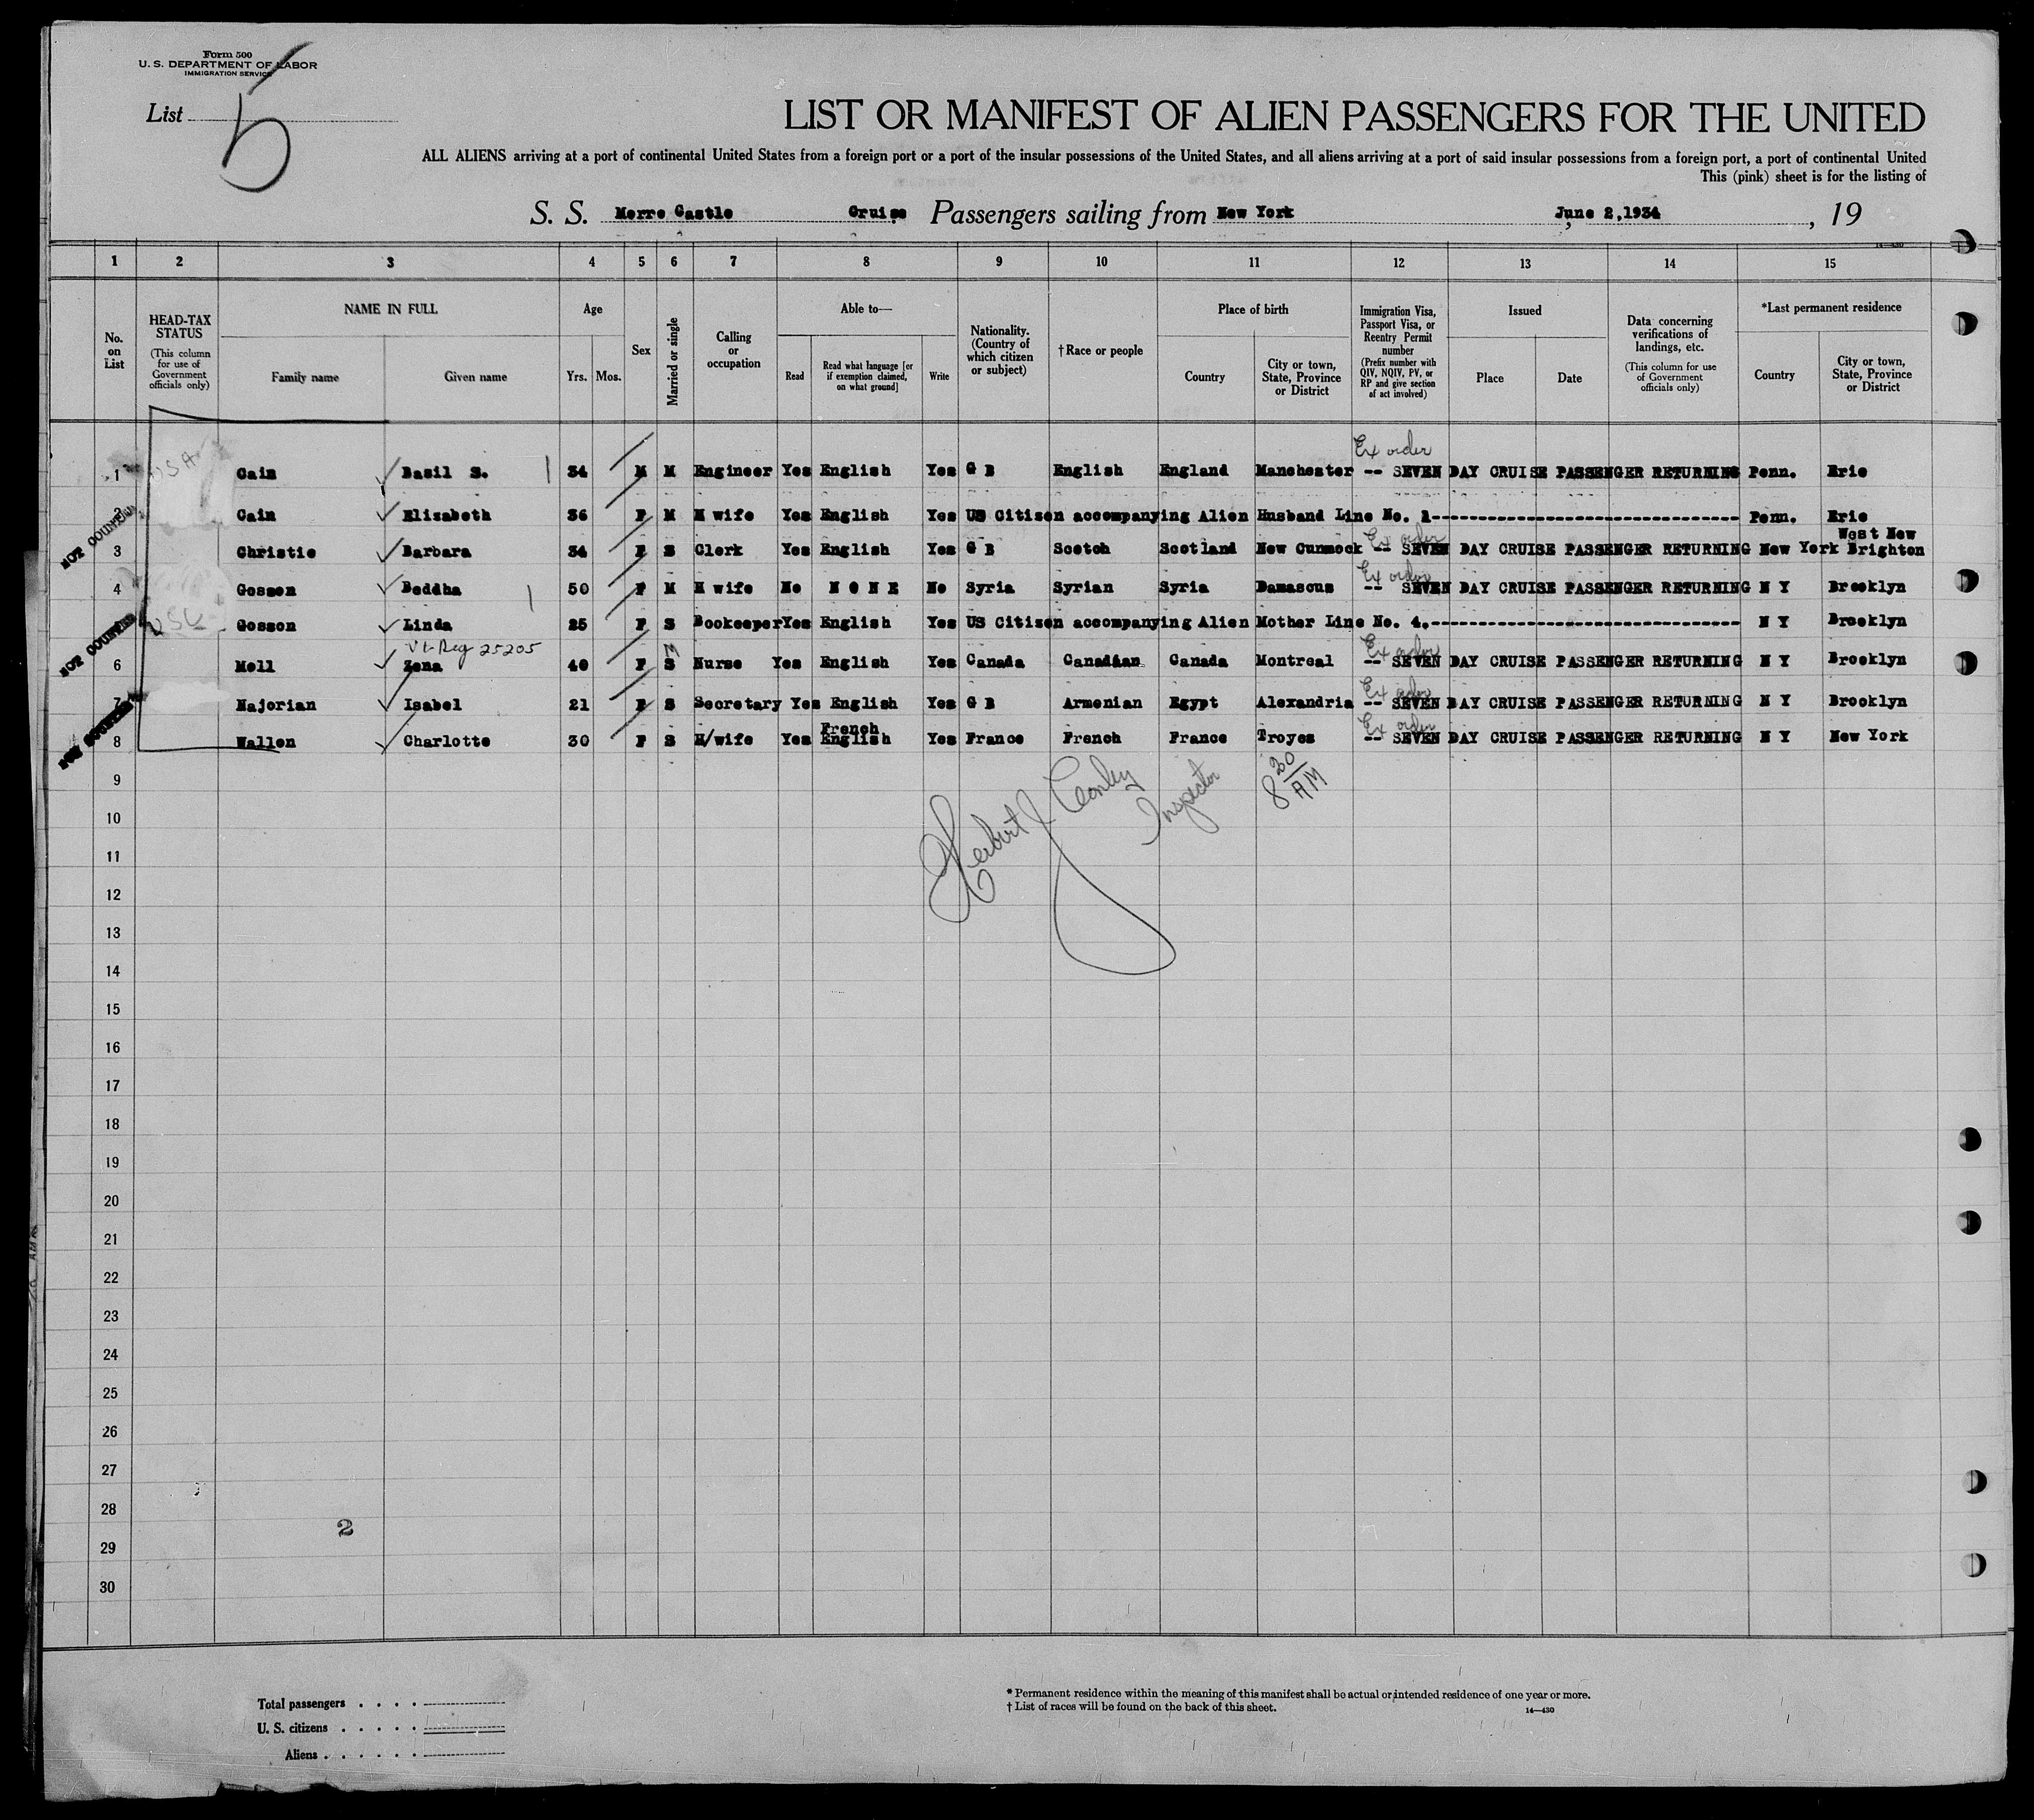 Form 500
U. S. DEPARTMENT OF LABOR
IMMIGRATION SERVICE
List 5
LIST OR MANIFEST OF ALIEN PASSENGERS FOR THE UNITED
ALL ALIENS arriving at a port of continental United States from a foreign port or a port of the insular possessions of the United States, and all aliens arriving at a port of said insular possessions from a foreign port, a port of continental United
This (pink) sheet is for the listing of
S. S. Morro Castle Cruise Passengers sailing from New York June 2, 1934, 19
14-430
1 2 3 4 5 6 7 8 9 10 11 12 13 14 15
No. on List
HEAD-TAX STATUS
(This column for use of Government officials only)
NAME IN FULL
Family name Given name
Age
Yrs. Mos.
Sex
Married or single
Calling or occupation
Able to—
Read
Read what language [or if exemption claimed, on what ground]
Write
Nationality. (Country of which citizen or subject)
†Race or people
Place of birth
Country
City or town, State, Province or District
Immigration Visa, Passport Visa, or Reentry Permit number
(Prefix number with QIV, NQIV, PV, or RP and give section of act involved)
Issued
Place Date
Data concerning verifications of landings, etc.
(This column for use of Government officials only)
*Last permanent residence
Country
City or town, State, Province or District
Ex order
1 USA Cain Basil S. 34 M M Engineer Yes English Yes G B English England Manchester -- SEVEN DAY CRUISE PASSENGER RETURNING Penn. Erie
2 Cain Elizabeth 36 F M H wife Yes English Yes US Citizen accompanying Alien Husband Line No. 1------------------------------ Penn. Erie
NOT COUNTED
Ex order West New
3 Christie Barbara 34 F S Clerk Yes English Yes G B Scotch Scotland New Cunmock -- SEVEN DAY CRUISE PASSENGER RETURNING New York Brighton
Ex order
4 Gosson Beddha 50 F M H wife No NONE No Syria Syrian Syria Damascus -- SEVEN DAY CRUISE PASSENGER RETURNING N Y Brooklyn
USC Gosson Linda 25 F S Bookeeper Yes English Yes US Citizen accompanying Alien Mother Line No. 4.------------------------------ N Y Brooklyn
NOT COUNTED
Vt-Reg 25205 M Ex order
6 Moll Zena 40 F S Nurse Yes English Yes Canada Canadian Canada Montreal -- SEVEN DAY CRUISE PASSENGER RETURNING N Y Brooklyn
Ex order
7 Najorian Isabel 21 F S Secretary Yes English Yes G B Armenian Egypt Alexandria -- SEVEN DAY CRUISE PASSENGER RETURNING N Y Brooklyn
NOT COUNTED
French Ex order
8 Wallen Charlotte 30 F S H/wife Yes English Yes France French France Troyes -- SEVEN DAY CRUISE PASSENGER RETURNING N Y New York
Herbert J Conley Inspector 8 20/AM
9
10
11
12
13
14
15
16
17
18
19
20
21
22
23
24
25
26
27
28
2
29
30
Total passengers . . . .
U. S. citizens . . . . .
Aliens . . . . . .
* Permanent residence within the meaning of this manifest shall be actual or intended residence of one year or more.
† List of races will be found on the back of this sheet.
14—430